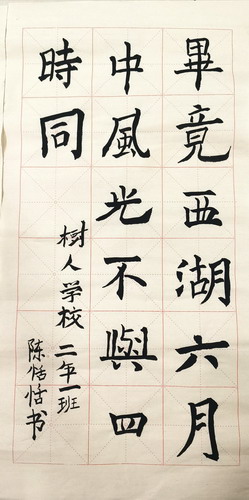 畢竟西湖六月
中風光不與四
時同
树人学校 二年一班
陈恬恬书